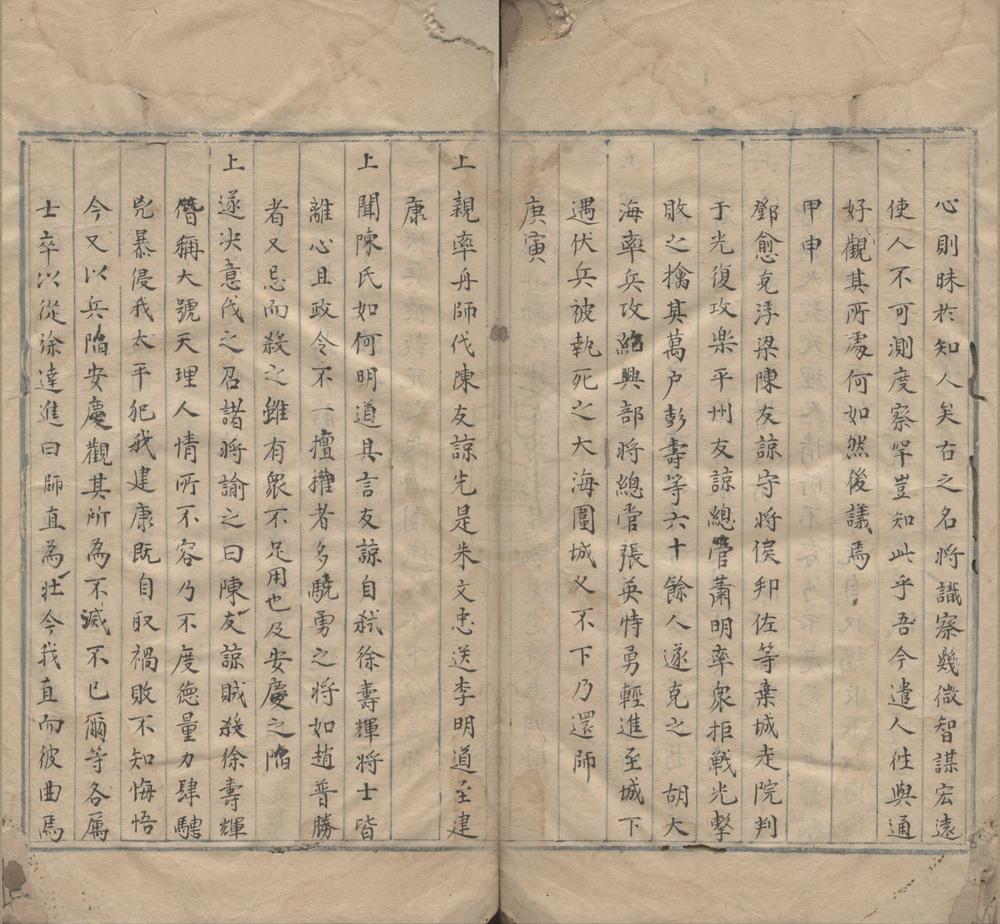 心則昧於知人矣右之名將識察幾微智謀宏遠
使人不可測度察罕豈知此乎吾今遣人往與通
好觀其所處何如然後議焉
甲申
鄧愈克浮梁陳友諒守將侯邦佐等棄城走院判
于光復攻樂平州友諒總管蕭明率衆拒戰光擊
敗之擒其萬户彭壽等六十餘人遂克之 胡大
海率兵攻紹興部將總管張英恃勇輕進至城下
遇伏兵被執死之大海圍城乂不下乃還師
庚寅
上親率舟師伐陳友諒先是朱文忠送李明道至建
康
上聞陳氏如何明道具言友諒自弒徐壽輝將士皆
離心且政令不一擅權者多驍勇之將如趙普勝
者又忌而殺之雖有衆不足用也及安慶之陷
上遂決意伐之召諸將諭之曰陳友諒賊殺徐壽輝
僭稱大號天理人情所不容乃不度德量力肆騁
兇暴侵我太平犯我建康既自取禍敗不知悔悟
今又以兵陷安慶觀其所為不滅不已爾等各厲
士卒以從徐達進曰師直為壯今我直而彼曲焉